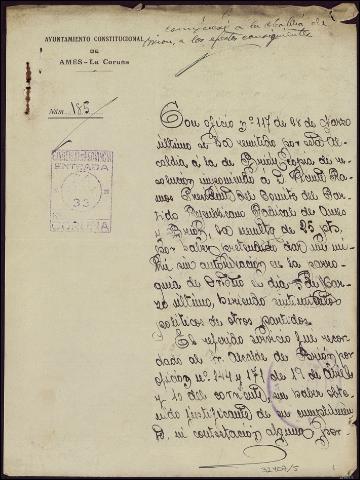 comuníquese a la Alcaldía de
, a los efectos consiguientes
AYUNTAMIENTO CONSTITUCIONAL
DE
AMES - La Coruña
Núm. 185
GOBIERNO
ENTRADA
33
CORUÑA
Con oficio nº 117 de 28 de Marzo
último se ha remitido por esta Al-
caldía a la de Brión copia de re-
solución imponiendo a D. Ra-
mos Presidente del Comité del Par-
tido Republicano Radical de Ames
y Brión, la multa de 25 pts.
por haber dar un mi-
tin sin autorización en la parro-
quia de Ortoño el día 5 de Mar-
zo último, hiriendo sentimientos
políticos de otros partidos.
El referido servicio fué recor-
dado al Sr. Alcalde de Brión por
oficios nº 144 y 171 de 19 de Abril
y 10 del corriente, sin haber obte-
nido justificante de su cumplimien-
to ni contestación alguna, por